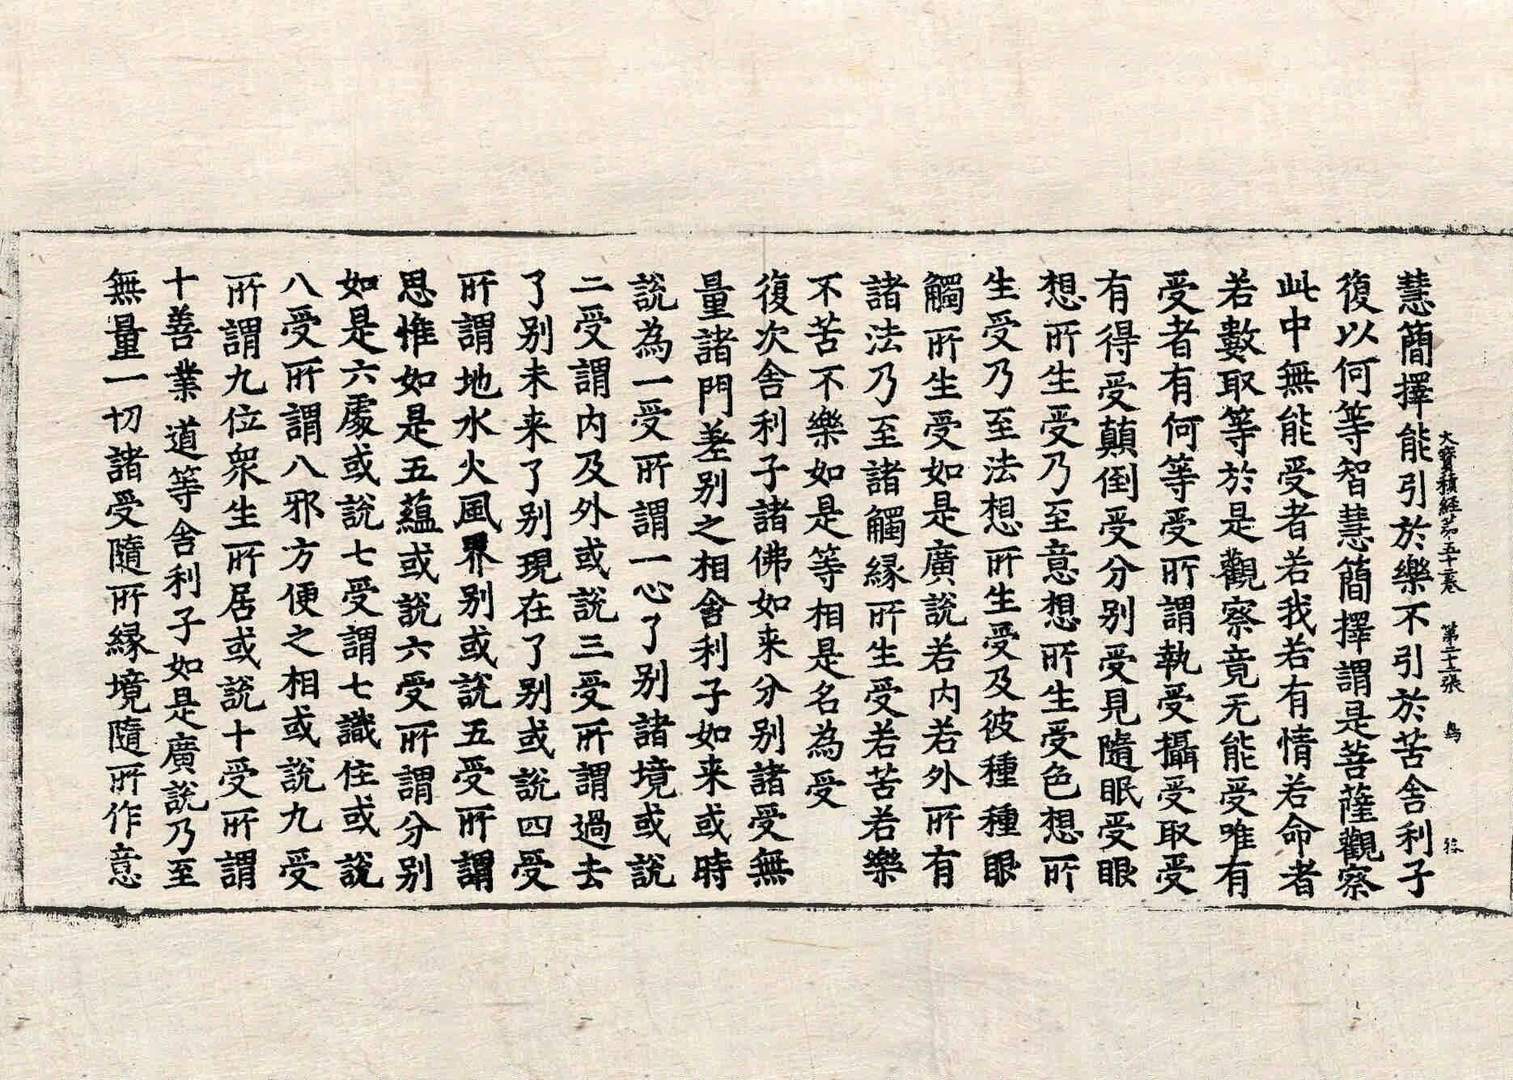 慧簡擇能引於樂不引於苦舍利子
大寶積經苐五十二卷　第二十二張　鳥
復以何等智慧簡擇謂是菩薩觀察
此中無能受者若我若有情若命者
若數取等於是觀察竟无能受唯有
受者有何等受所謂執受攝受取受
有得受顛倒受分別受見隨眠受眼
想所生受乃至意想所生受色想所
生受乃至法想所生受及彼種種眼
觸所生受如是廣說若內若外所有
諸法乃至諸觸緣所生受若苦若樂
不苦不樂如是等相是名為受
復次舍利子諸佛如来分別諸受無
量諸門差別之相舍利子如来或時
說為一受所謂一心了別諸境或說
二受謂內及外或說三受所謂過去
了別未来了別現在了別或說四受
所謂地水火風界別或說五受所謂
思惟如是五蘊或說六受所謂分別
如是六處或說七受謂七識住或說
八受所謂八邪方便之相或說九受
所謂九位眾生所居或說十受所謂
十善業道等舍利子如是廣說乃至
無量一切諸受隨所緣境隨所作意